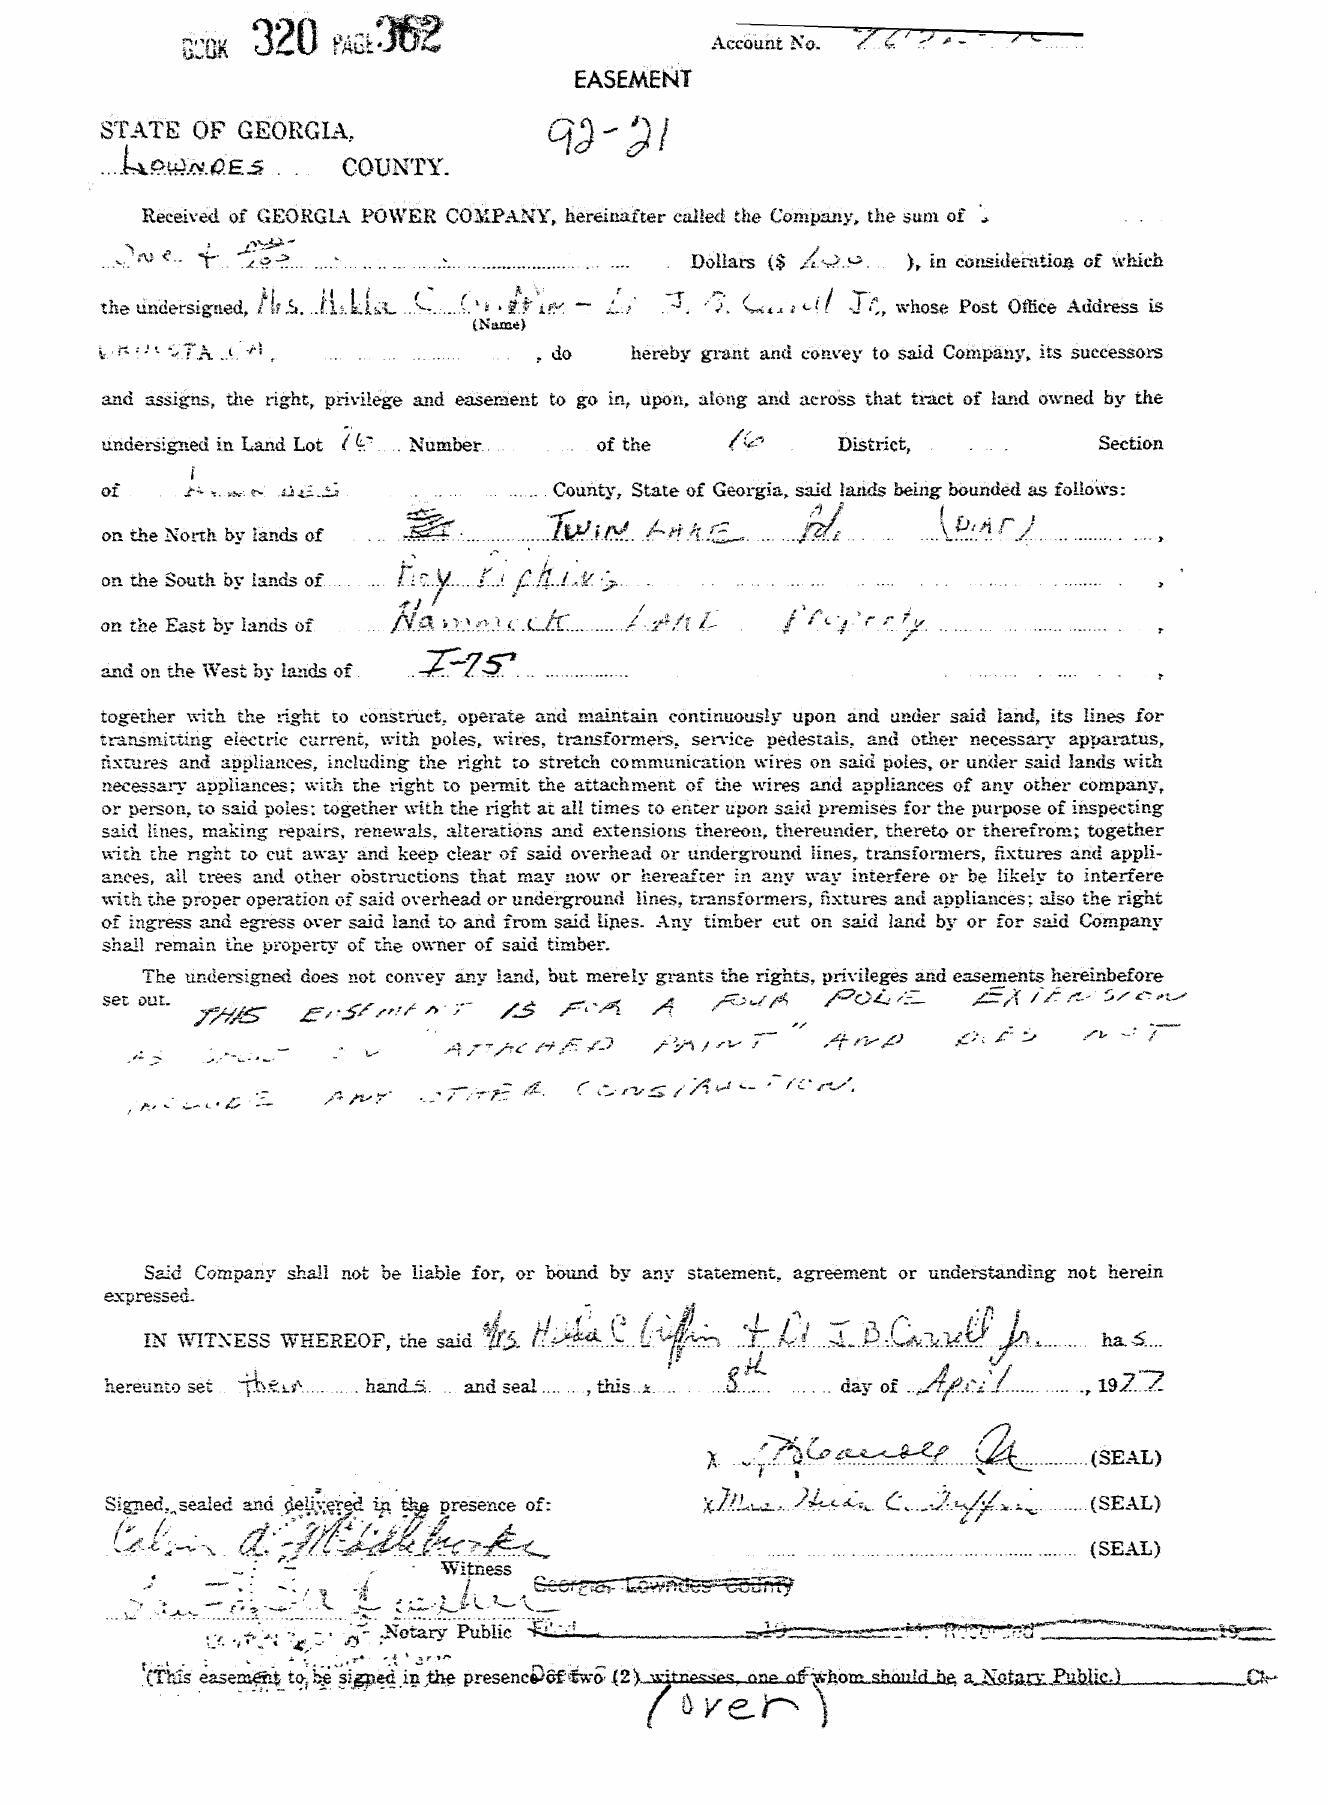 BOOK 320 PAGE 362
Account No.
EASEMENT
STATE OF GEORGIA,
92-21
LOWNDES COUNTY.
Received of GEORGIA POWER COMPANY, hereinafter called the Company, the sum of
One + Dollars ($ 1.00 ), in consideration of which
the undersigned, Mrs. Hilda C. Griffin - J. B. Carroll Jr., whose Post Office Address is
(Name)
, do hereby grant and convey to said Company, its successors
and assigns, the right, privilege and easement to go in, upon, along and across that tract of land owned by the
undersigned in Land Lot Number of the 16 District, Section
of LOWNDES County, State of Georgia, said lands being bounded as follows:
on the North by lands of TWIN LAKE Rd. (Dirt),
on the South by lands of Roy Pipkins,
on the East by lands of Hammock LAKE Property,
and on the West by lands of I-75,
together with the right to construct, operate and maintain continuously upon and under said land, its lines for
transmitting electric current, with poles, wires, transformers, service pedestals, and other necessary apparatus,
fixtures and appliances, including the right to stretch communication wires on said poles, or under said lands with
necessary appliances; with the right to permit the attachment of the wires and appliances of any other company,
or person, to said poles; together with the right at all times to enter upon said premises for the purpose of inspecting
said lines, making repairs, renewals, alterations and extensions thereon, thereunder, thereto or therefrom; together
with the right to cut away and keep clear of said overhead or underground lines, transformers, fixtures and appli-
ances, all trees and other obstructions that may now or hereafter in any way interfere or be likely to interfere
with the proper operation of said overhead or underground lines, transformers, fixtures and appliances; also the right
of ingress and egress over said land to and from said lines. Any timber cut on said land by or for said Company
shall remain the property of the owner of said timber.
The undersigned does not convey any land, but merely grants the rights, privileges and easements hereinbefore
set out. THIS EASEMENT IS FOR A FOUR POLE EXTENSION
AS "ATTACHED PRINT" AND DOES NOT
INCLUDE ANY OTHER CONSTRUCTION.
Said Company shall not be liable for, or bound by any statement, agreement or understanding not herein
expressed.
IN WITNESS WHEREOF, the said Mrs. Hilda C Griffin + J. B. Carroll Jr. has
hereunto set their hands and seal, this x 8th day of April, 1977
x J B Carroll Jr (SEAL)
Signed, sealed and delivered in the presence of: x Mrs. Hilda C. Griffin (SEAL)
Calvin A. Middlebrooks (SEAL)
Witness
Georgia, Lowndes County
Notary Public Filed 19 M. Recorded 19
(This easement to be signed in the presence of two (2) witnesses, one of whom should be a Notary Public.)
(over)